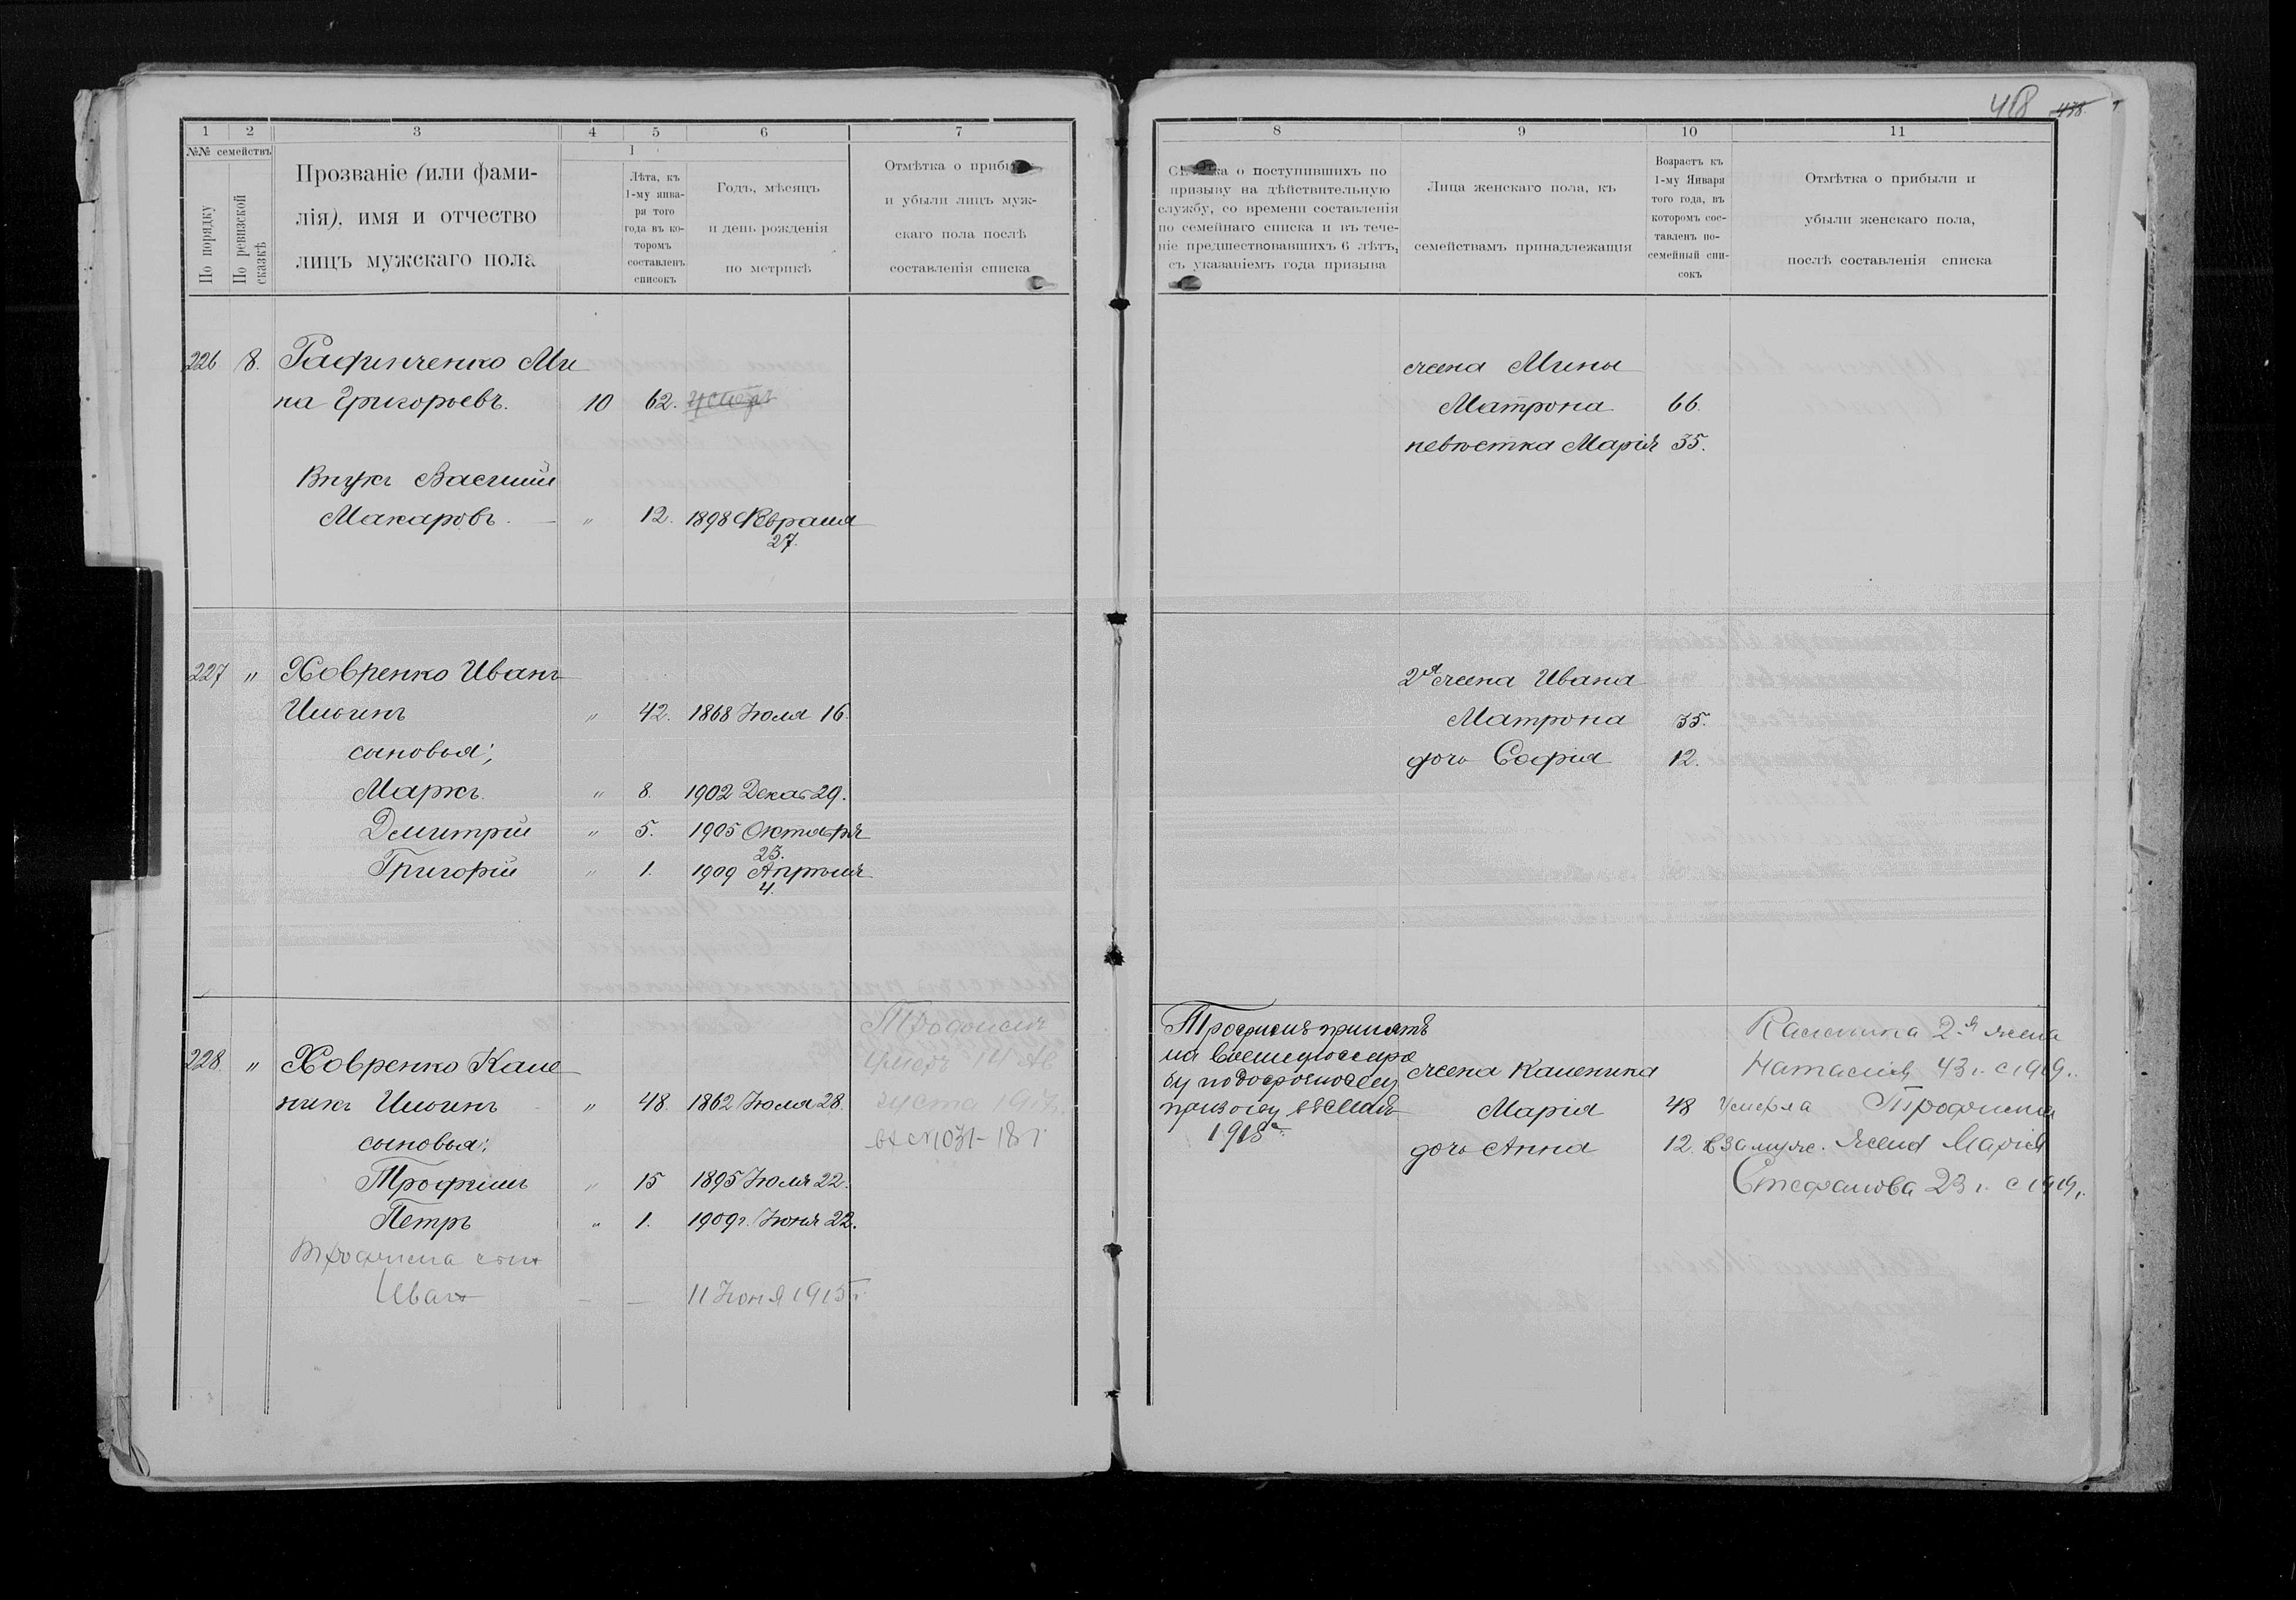 418 438.
1 2 3 4 5 6 7
№№ семействъ
По порядку
По ревизской сказкѣ
Прозваніе (или фами-
лія), имя и отчество
лицъ мужскаго пола
I
Лѣта, къ
1-му янва-
ря того
года въ ко-
торомъ
составленъ
списокъ
Годъ, мѣсяцъ
и день рожденія
по метрикѣ
Отмѣтка о прибы
и убыли лицъ муж-
скаго пола послѣ
составленія списка
226 8. Гафинченко Ми
на Григорьевъ. 10 62. умеръ
Внукъ Василій
Макаровъ. — " 12. 1898 Февраля
27.
227 " Ховренко Иванъ
Ильинъ " 42. 1868 Іюля 16.
сыновья:
Маркъ " 8. 1902 Декаб 29.
Дмитрій " 5. 1905 Октября
23.
Григорій " 1. 1909 Апрѣля
4.
Трофимъ
228. " Ховренко Кале умеръ 14 Ав
никъ Ильинъ " 48. 1862 Іюля 28. густа 191
сыновья: 1031-18 г.
Трофимъ " 15 1895 Іюля 22.
Петръ " 1. 1909г. Іюня 22.
Трофима сынъ
Иванъ — — 11 Іюня 1915 г.
8 9 10 11
ка о поступившихъ по
призыву на дѣйствительную
службу, со времени составленія
по семейнаго списка и въ тече-
ніе предшествовавшихъ 6 лѣтъ,
съ указаніемъ года призыва
Лица женскаго пола, къ
семействамъ принадлежащія
Возрастъ къ
1-му Января
того года, въ
которомъ сос-
тавленъ по-
семейный спи-
сокъ
Отмѣтка о прибыли и
убыли женскаго пола,
послѣ составленія списка
жена Мины
Матрона 66.
невѣстка Марія 35.
2я жена Ивана
Матрона 35.
дочь Софія 12.
Трофимъ принятъ
на военную служ
бу по досрочному
призыву въ маѣ
1915 г.
жена Каленика
Марія 48 Умерла
дочь Анна 12. Взамуж.
Каленика 2-я жена
Наталія 43 г. с 1919 г.
Трофима
жена Марія
Стефанова 23 г. с 1919 г.